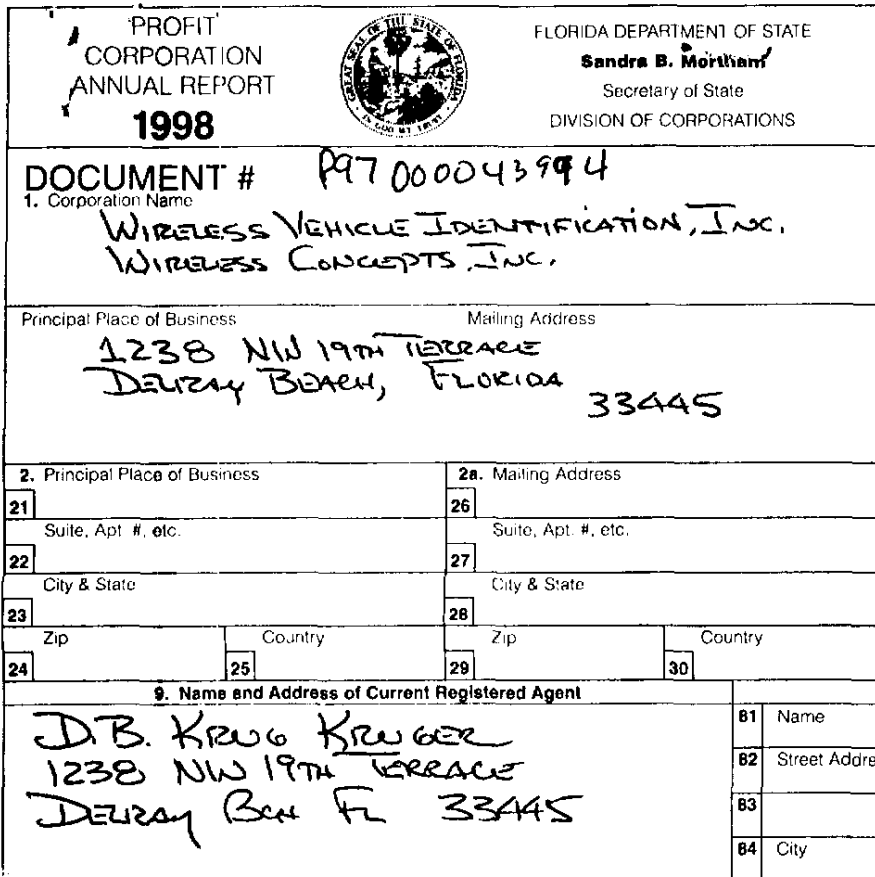 PROFIT
CORPORATION
ANNUAL REPORT
1998
GREAT SEAL OF THE STATE OF FLORIDA
IN GOD WE TRUST
FLORIDA DEPARTMENT OF STATE
Sandra B. Mortham
Secretary of State
DIVISION OF CORPORATIONS
DOCUMENT # P97000043994
1. Corporation Name
WIRELESS VEHICLE IDENTIFICATION, INC.
WIRELESS CONCEPTS, INC.
Principal Place of Business Mailing Address
1238 NW 19TH TERRACE
DELRAY BEACH, FLORIDA
33445
2. Principal Place of Business 2a. Mailing Address
21 26
Suite, Apt #, etc. Suite, Apt. #, etc.
22 27
City & State City & State
23 28
Zip Country Zip Country
24 25 29 30
9. Name and Address of Current Registered Agent
D.B. KRUG KRUGER
1238 NW 19TH TERRACE
DELRAY BCH FL 33445
81 Name
82 Street Addre
83
84 City